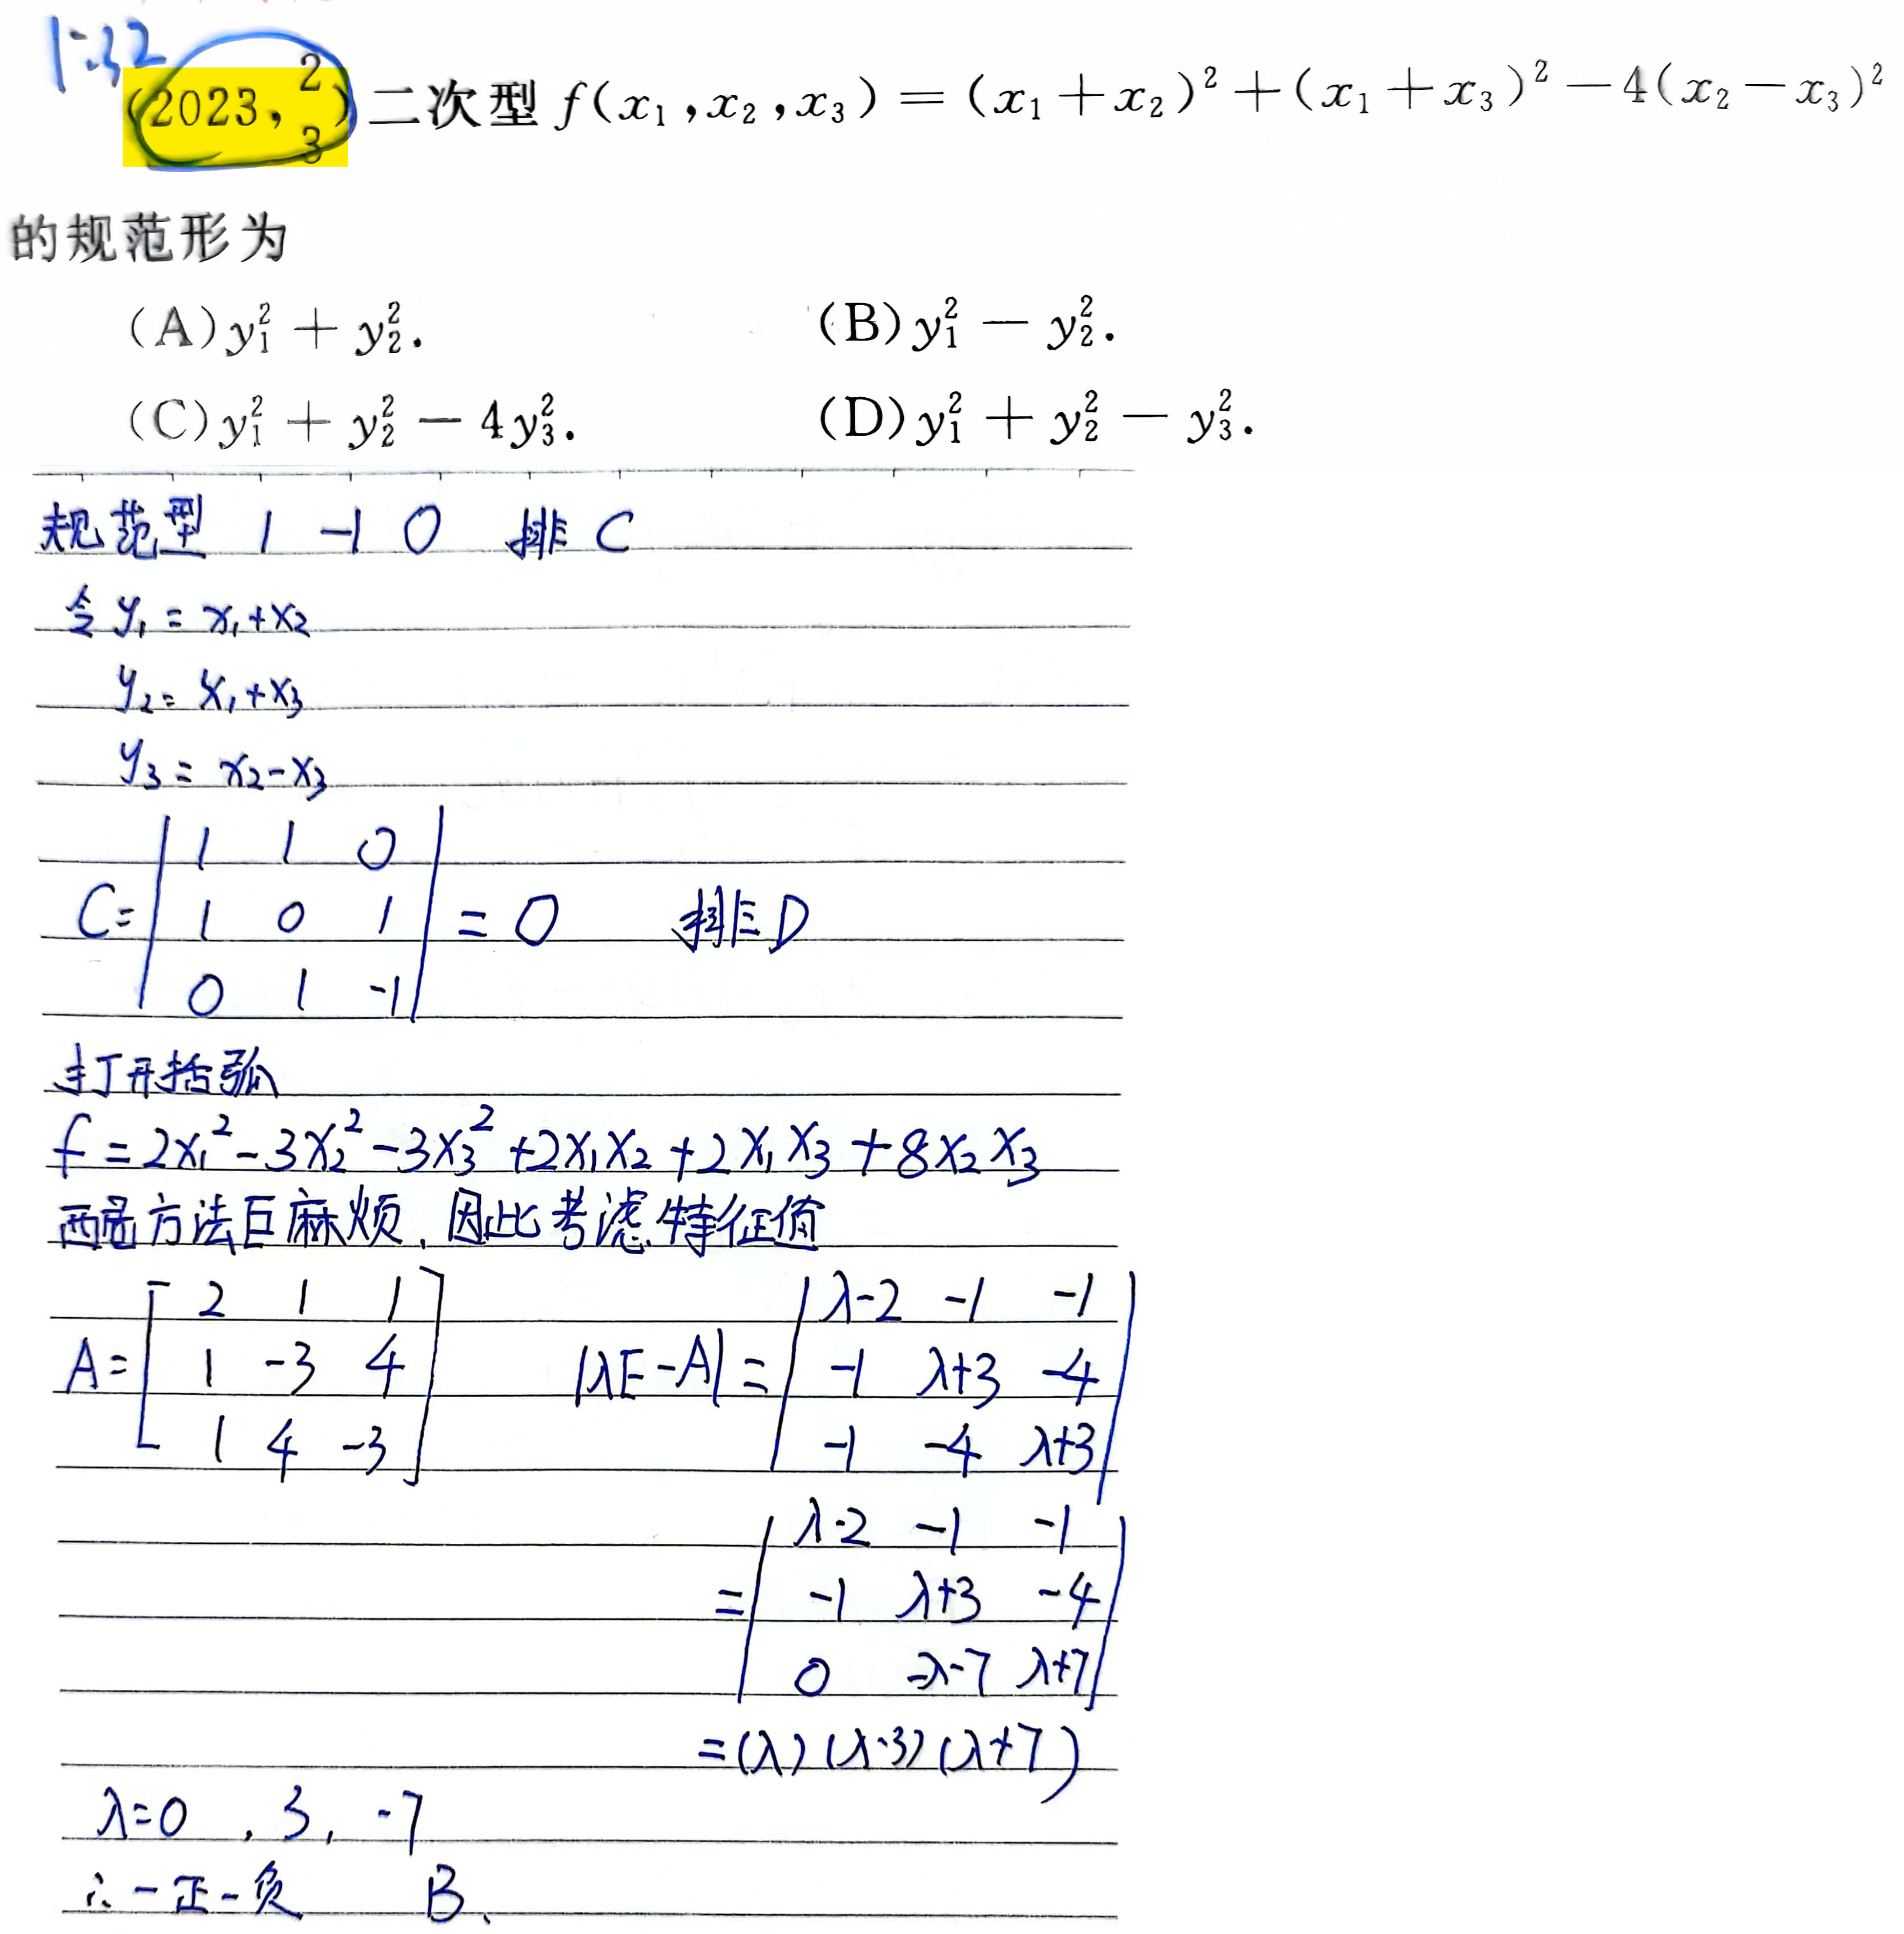 1:32
(2023, 2 3) 二次型 f(x₁,x₂,x₃) = (x₁+x₂)² + (x₁+x₃)² − 4(x₂−x₃)²
的规范形为
(A) y₁² + y₂². (B) y₁² − y₂².
(C) y₁² + y₂² − 4y₃². (D) y₁² + y₂² − y₃².
规范型 1 −1 0 排 C
令 y₁ = x₁+x₂
y₂ = x₁+x₃
y₃ = x₂−x₃
C = | 1 1 0 |
| 1 0 1 | = 0 排 D
| 0 1 -1 |
打开括弧
f = 2x₁² − 3x₂² − 3x₃² + 2x₁x₂ + 2x₁x₃ + 8x₂x₃
方法巨麻烦, 因此考滤特征值
A = [ 2 1 1 ; 1 -3 4 ; 1 4 -3 ] |λE−A| = | λ-2 -1 -1 ; -1 λ+3 -4 ; -1 -4 λ+3 |
= | λ-2 -1 -1 ; -1 λ+3 -4 ; 0 -λ-7 λ+7 |
= (λ)(λ-3)(λ+7)
λ=0 , 3, -7
∴ 一正一负 B.